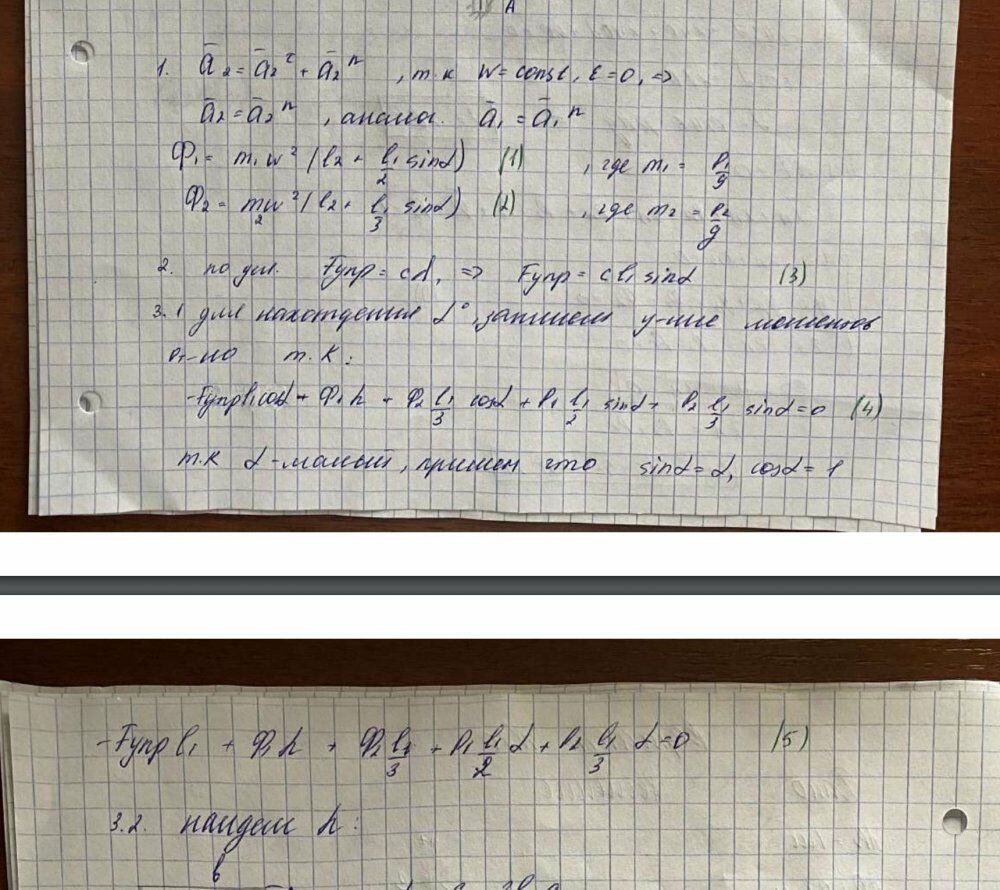 A
1. a̅₂ = a̅₂ᵗ + a̅₂ⁿ , т.к w = const, ε = 0, =>
a̅₂ = a̅₂ⁿ , аналог. a̅₁ = a̅₁ⁿ
Ф₁ = m₁w² (l₂ + l₁/2 sinα) (1) , где m₁ = P₁/g
Ф₂ = m₂w² (l₂ + l₁/3 sinα) (2) , где m₂ = P₂/g
2. по усл. Fупр = cλ, => Fупр = cl₁ sinα (3)
3.1 для нахождения α°, запишем у-ние моментов
от-но т. К:
-Fупр l₁ cosα + Ф₁h + Ф₂ l₁/3 cosα + P₁ l₁/2 sinα + P₂ l₁/3 sinα = 0 (4)
т.к α - малый, примем что sinα = α, cosα = 1
-Fупр l₁ + Ф₁h + Ф₂ l₁/3 + P₁ l₁/2 α + P₂ l₁/3 α = 0 (5)
3.2. найдем h:
в